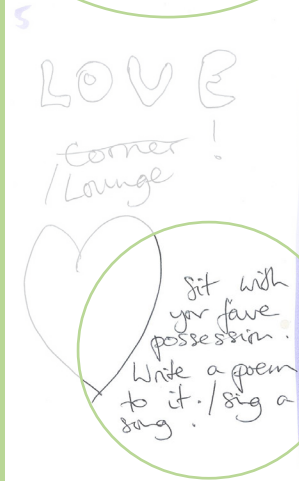 5
LOVE
Corner !
/Lounge
Sit with
your fave
possession.
Write a poem
to it. / Sing a
song.